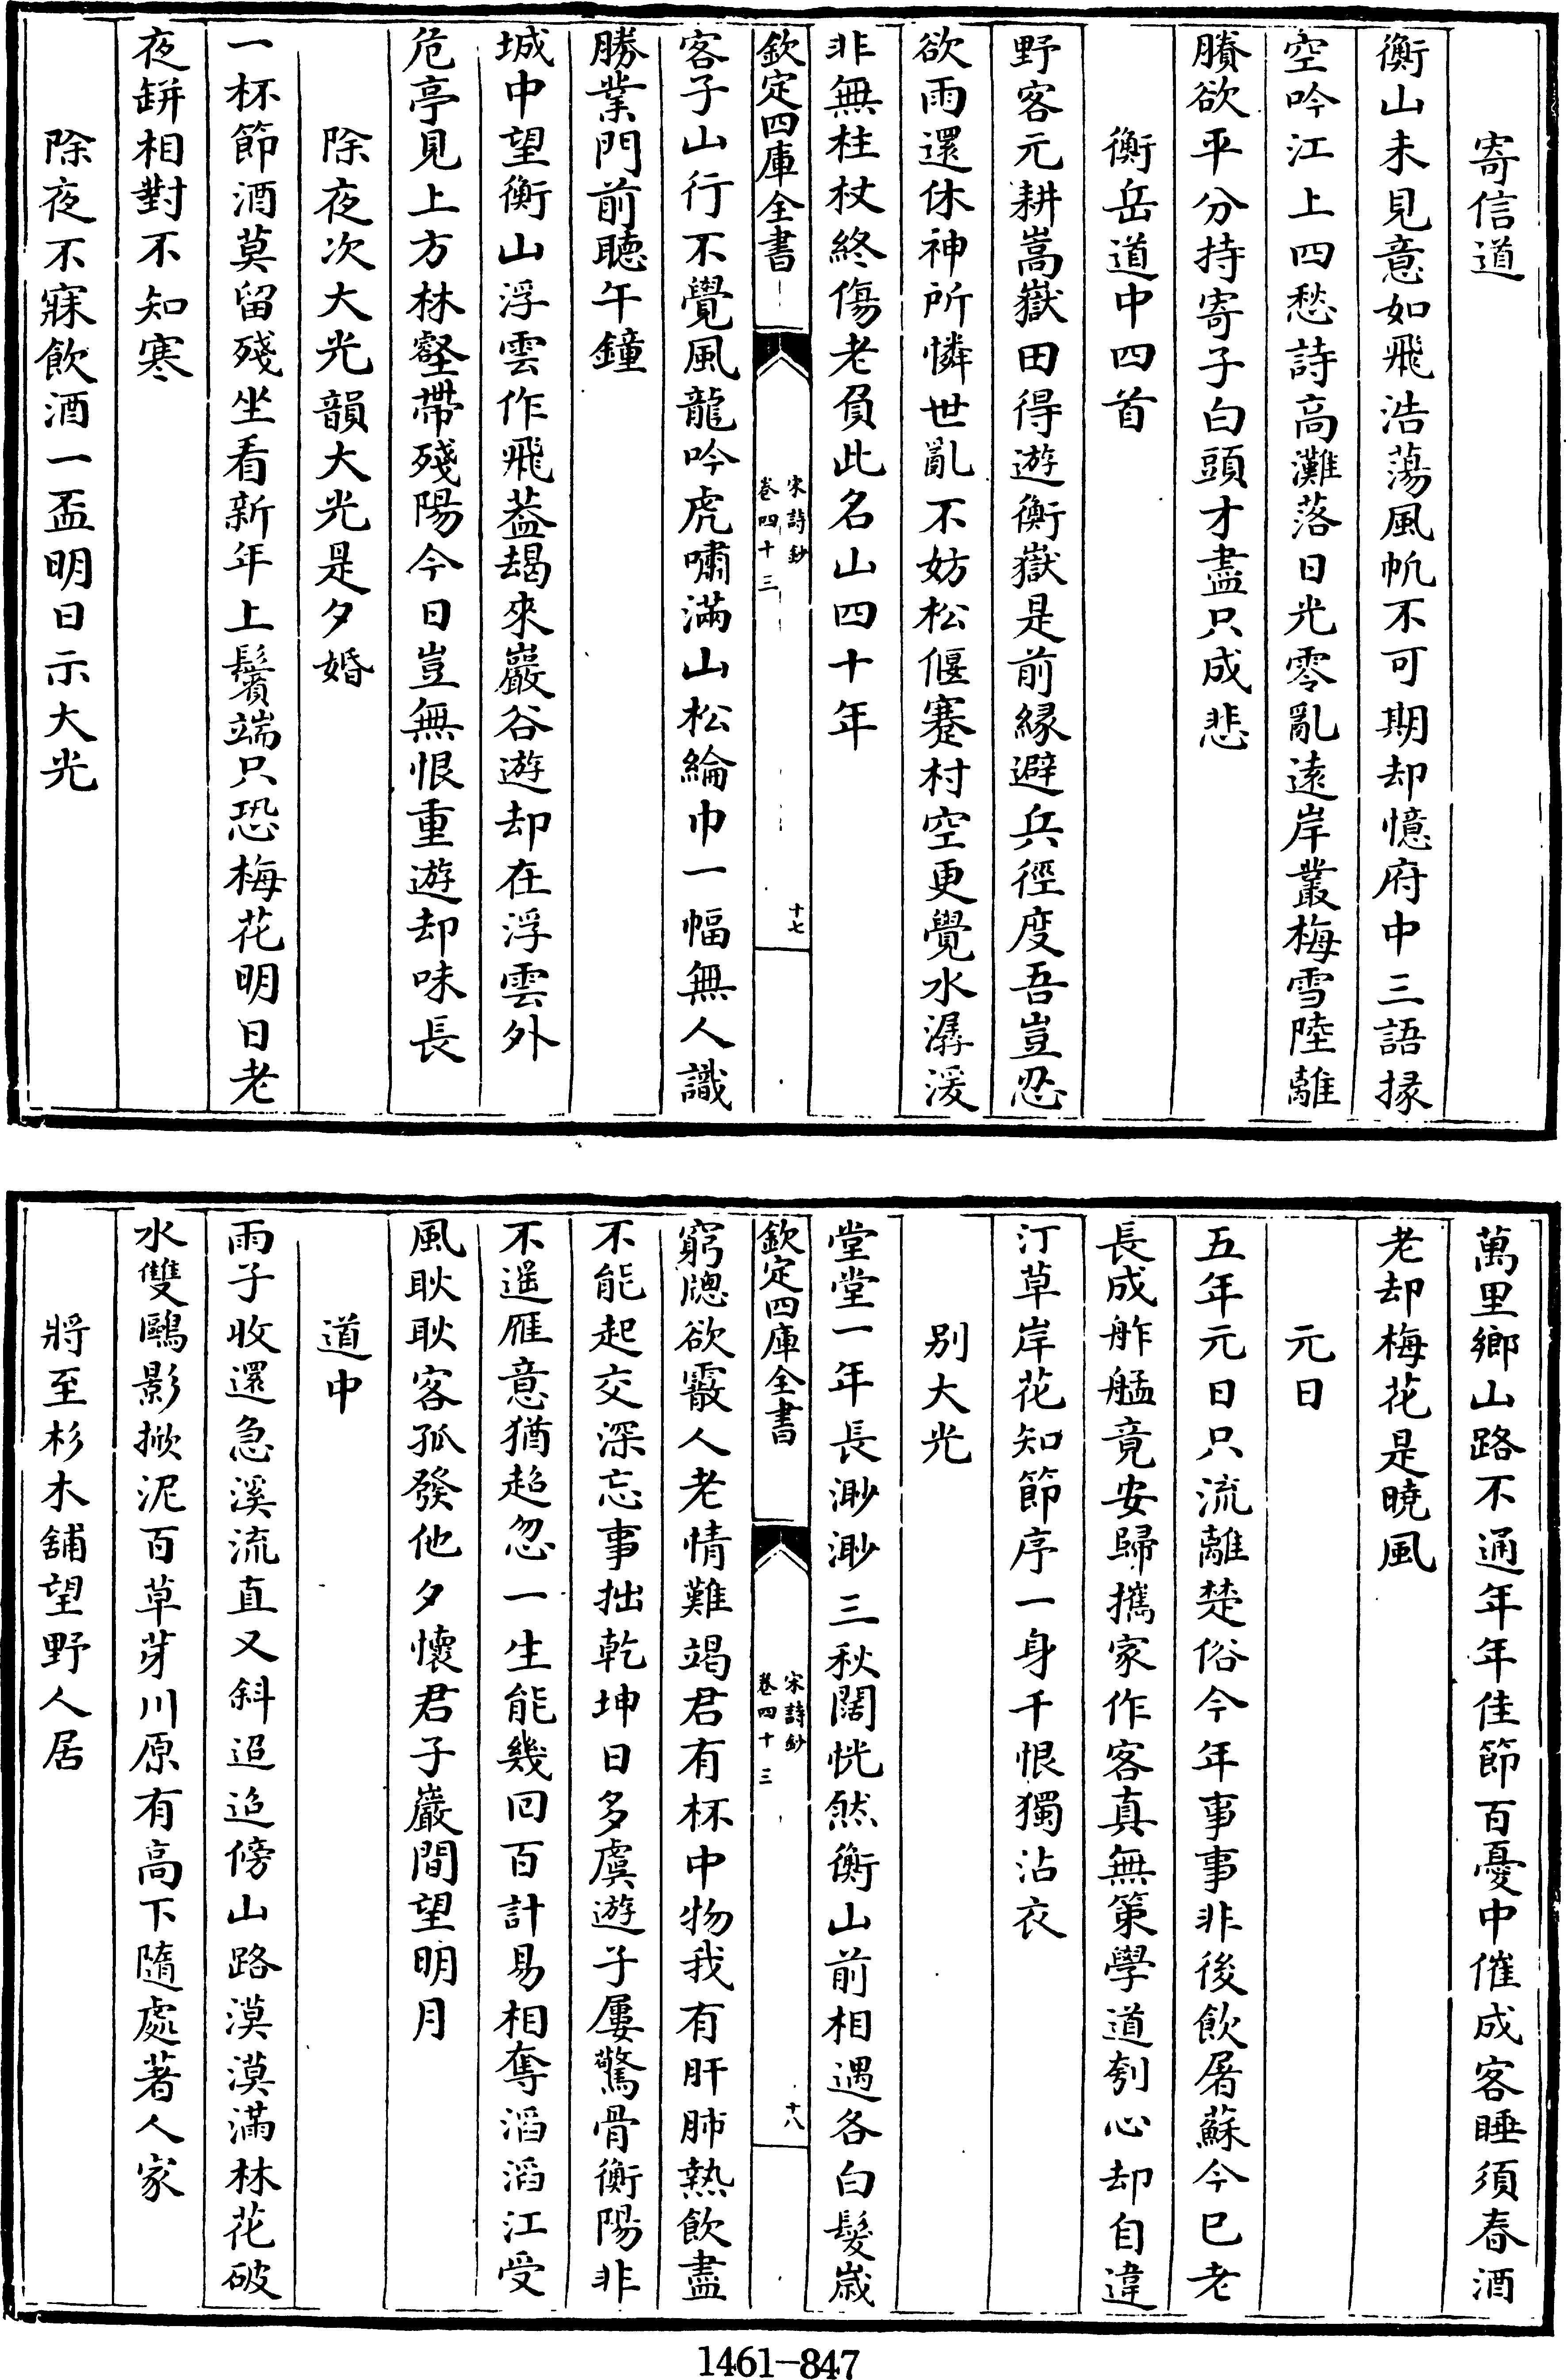 寄信道
衡山未見意如飛浩蕩風帆不可期却憶府中三語掾
空吟江上四愁詩高灘落日光零亂遠岸叢梅雪陸離
賸欲平分持寄子白頭才盡只成悲
衡岳道中四首
野客元耕嵩嶽田得遊衡嶽是前縁避兵徑度吾豈忍
欲雨還休神所憐世亂不妨松偃蹇村空更覺水潺湲
非無柱杖終傷老負此名山四十年
欽定四庫全書
宋詩鈔
卷四十三
十七
客子山行不覺風龍吟虎嘯滿山松綸巾一幅無人識
勝業門前聽午鐘
城中望衡山浮雲作飛蓋朅來巖谷遊却在浮雲外
危亭見上方林壑帶殘陽今日豈無恨重遊却味長
除夜次大光韻大光是夕婚
一杯節酒莫留殘坐看新年上鬢端只恐梅花明日老
夜缾相對不知寒
除夜不寐飲酒一盃明日示大光
萬里鄉山路不通年年佳節百憂中催成客睡須春酒
老却梅花是曉風
元日
五年元日只流離楚俗今年事事非後飲屠蘇今已老
長成舴艋竟安歸攜家作客真無策學道刳心却自違
汀草岸花知節序一身千恨獨沾衣
别大光
堂堂一年長渺渺三秋闊恍然衡山前相遇各白髮歲
欽定四庫全書
宋詩鈔
卷四十三
十八
窮牕欲霰人老情難竭君有杯中物我有肝肺熱飲盡
不能起交深忘事拙乾坤日多虞遊子屢驚骨衡陽非
不遥雁意猶超忽一生能幾回百計易相奪滔滔江受
風耿耿客孤發他夕懷君子巖間望明月
道中
雨子收還急溪流直又斜迢迢傍山路漠漠滿林花破
水雙鷗影掀泥百草芽川原有高下隨處著人家
將至杉木舖望野人居
1461-847